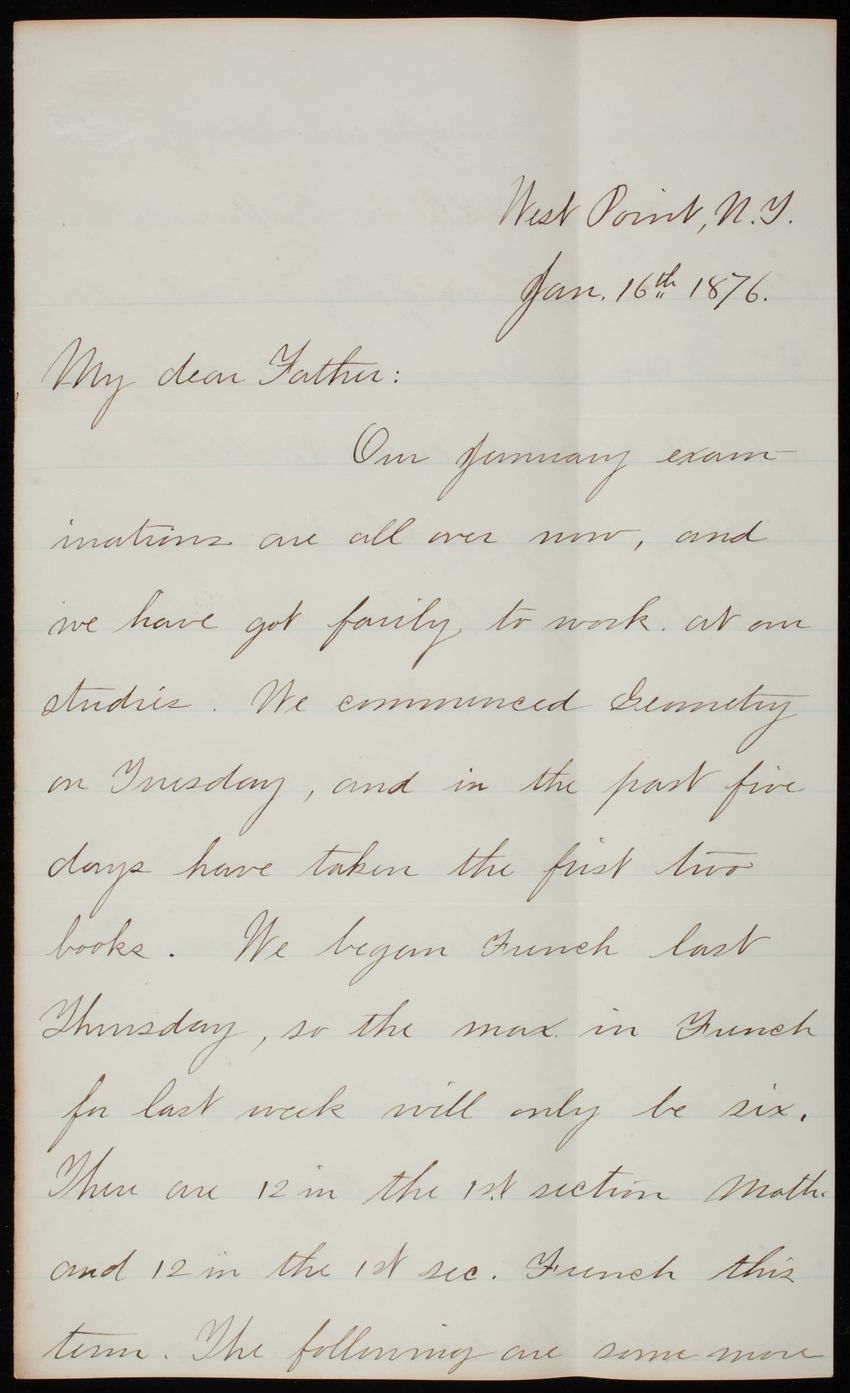 West Point, N.Y.
Jan. 16th 1876.
My dear Father:
Our January exam-
inations are all over now, and
we have got fairly to work at our
studies. We commenced Geometry
on Tuesday, and in the past five
days have taken the first two
books. We began French last
Thursday, so the max. in French
for last week will only be six.
There are 12 in the 1st section Math.
and 12 in the 1st sec. French this
term. The following are some more